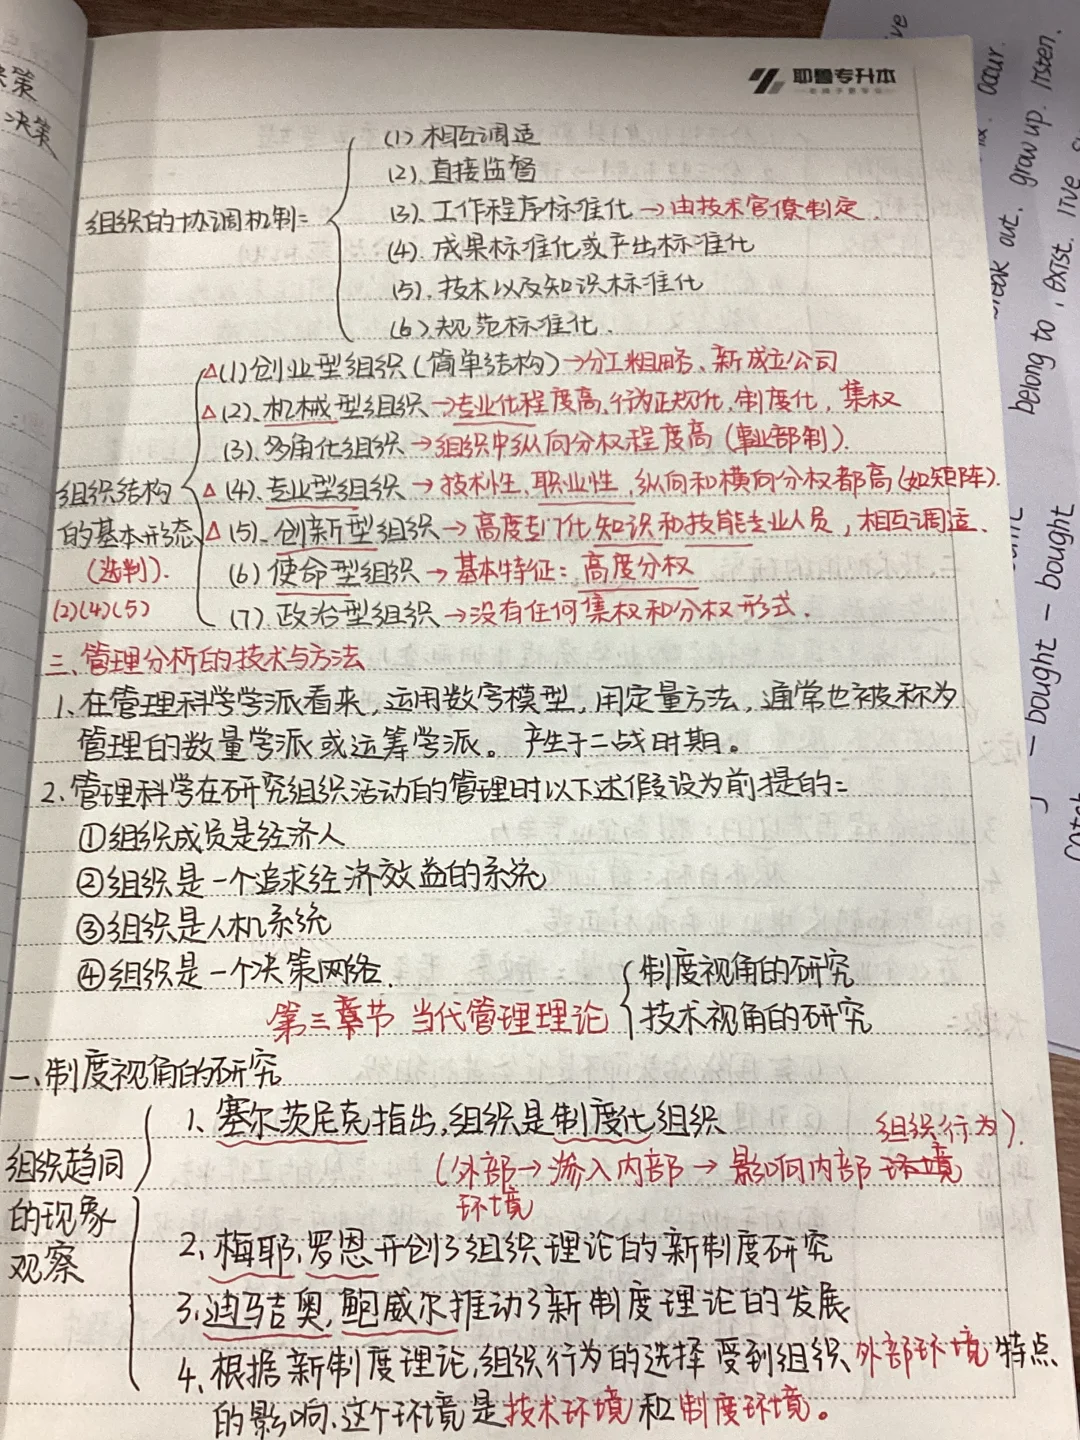 决策
决策
耶鲁专升本
组织的协调机制:
(1) 相互调适
(2). 直接监督
(3). 工作程序标准化→由技术官僚制定.
(4). 成果标准化或产出标准化
(5). 技术以及知识标准化
(6). 规范标准化.
组织结构
的基本形态
(选判).
(2)(4)(5)
△(1) 创业型组织(简单结构)→分工粗略、新成立公司
△(2). 机械型组织→专业化程度高,行为正规化,制度化,集权
(3). 多角化组织→组织中纵向分权程度高(事业部制).
△(4). 专业型组织→技术性,职业性,纵向和横向分权都高(如矩阵).
△(5). 创新型组织→高度专门化知识和技能专业人员,相互调适.
(6) 使命型组织→基本特征:高度分权
(7). 政治型组织→没有任何集权和分权形式.
三.管理分析的技术与方法
1. 在管理科学学派看来,运用数字模型,用定量方法,通常也被称为
管理的数量学派或运筹学派。产生于二战时期。
2. 管理科学在研究组织活动的管理时以下述假设为前提的:
①组织成员是经济人
②组织是一个追求经济效益的系统
③组织是人机系统
④组织是一个决策网络.
第三章节 当代管理理论
制度视角的研究
技术视角的研究
一.制度视角的研究
组织趋同
的现象
观察
1、塞尔茨尼克指出,组织是制度化组织
(外部→渗入内部→影响内部
环境
组织行为).
2. 梅耶,罗恩开创了组织理论的新制度研究
3. 迪马吉奥,鲍威尔推动了新制度理论的发展
4、根据新制度理论,组织行为的选择受到组织外部环境特点
的影响.这个环境是技术环境和制度环境。
occur.
break out. grow up. listen.
belong to, exist. live
bought - bought